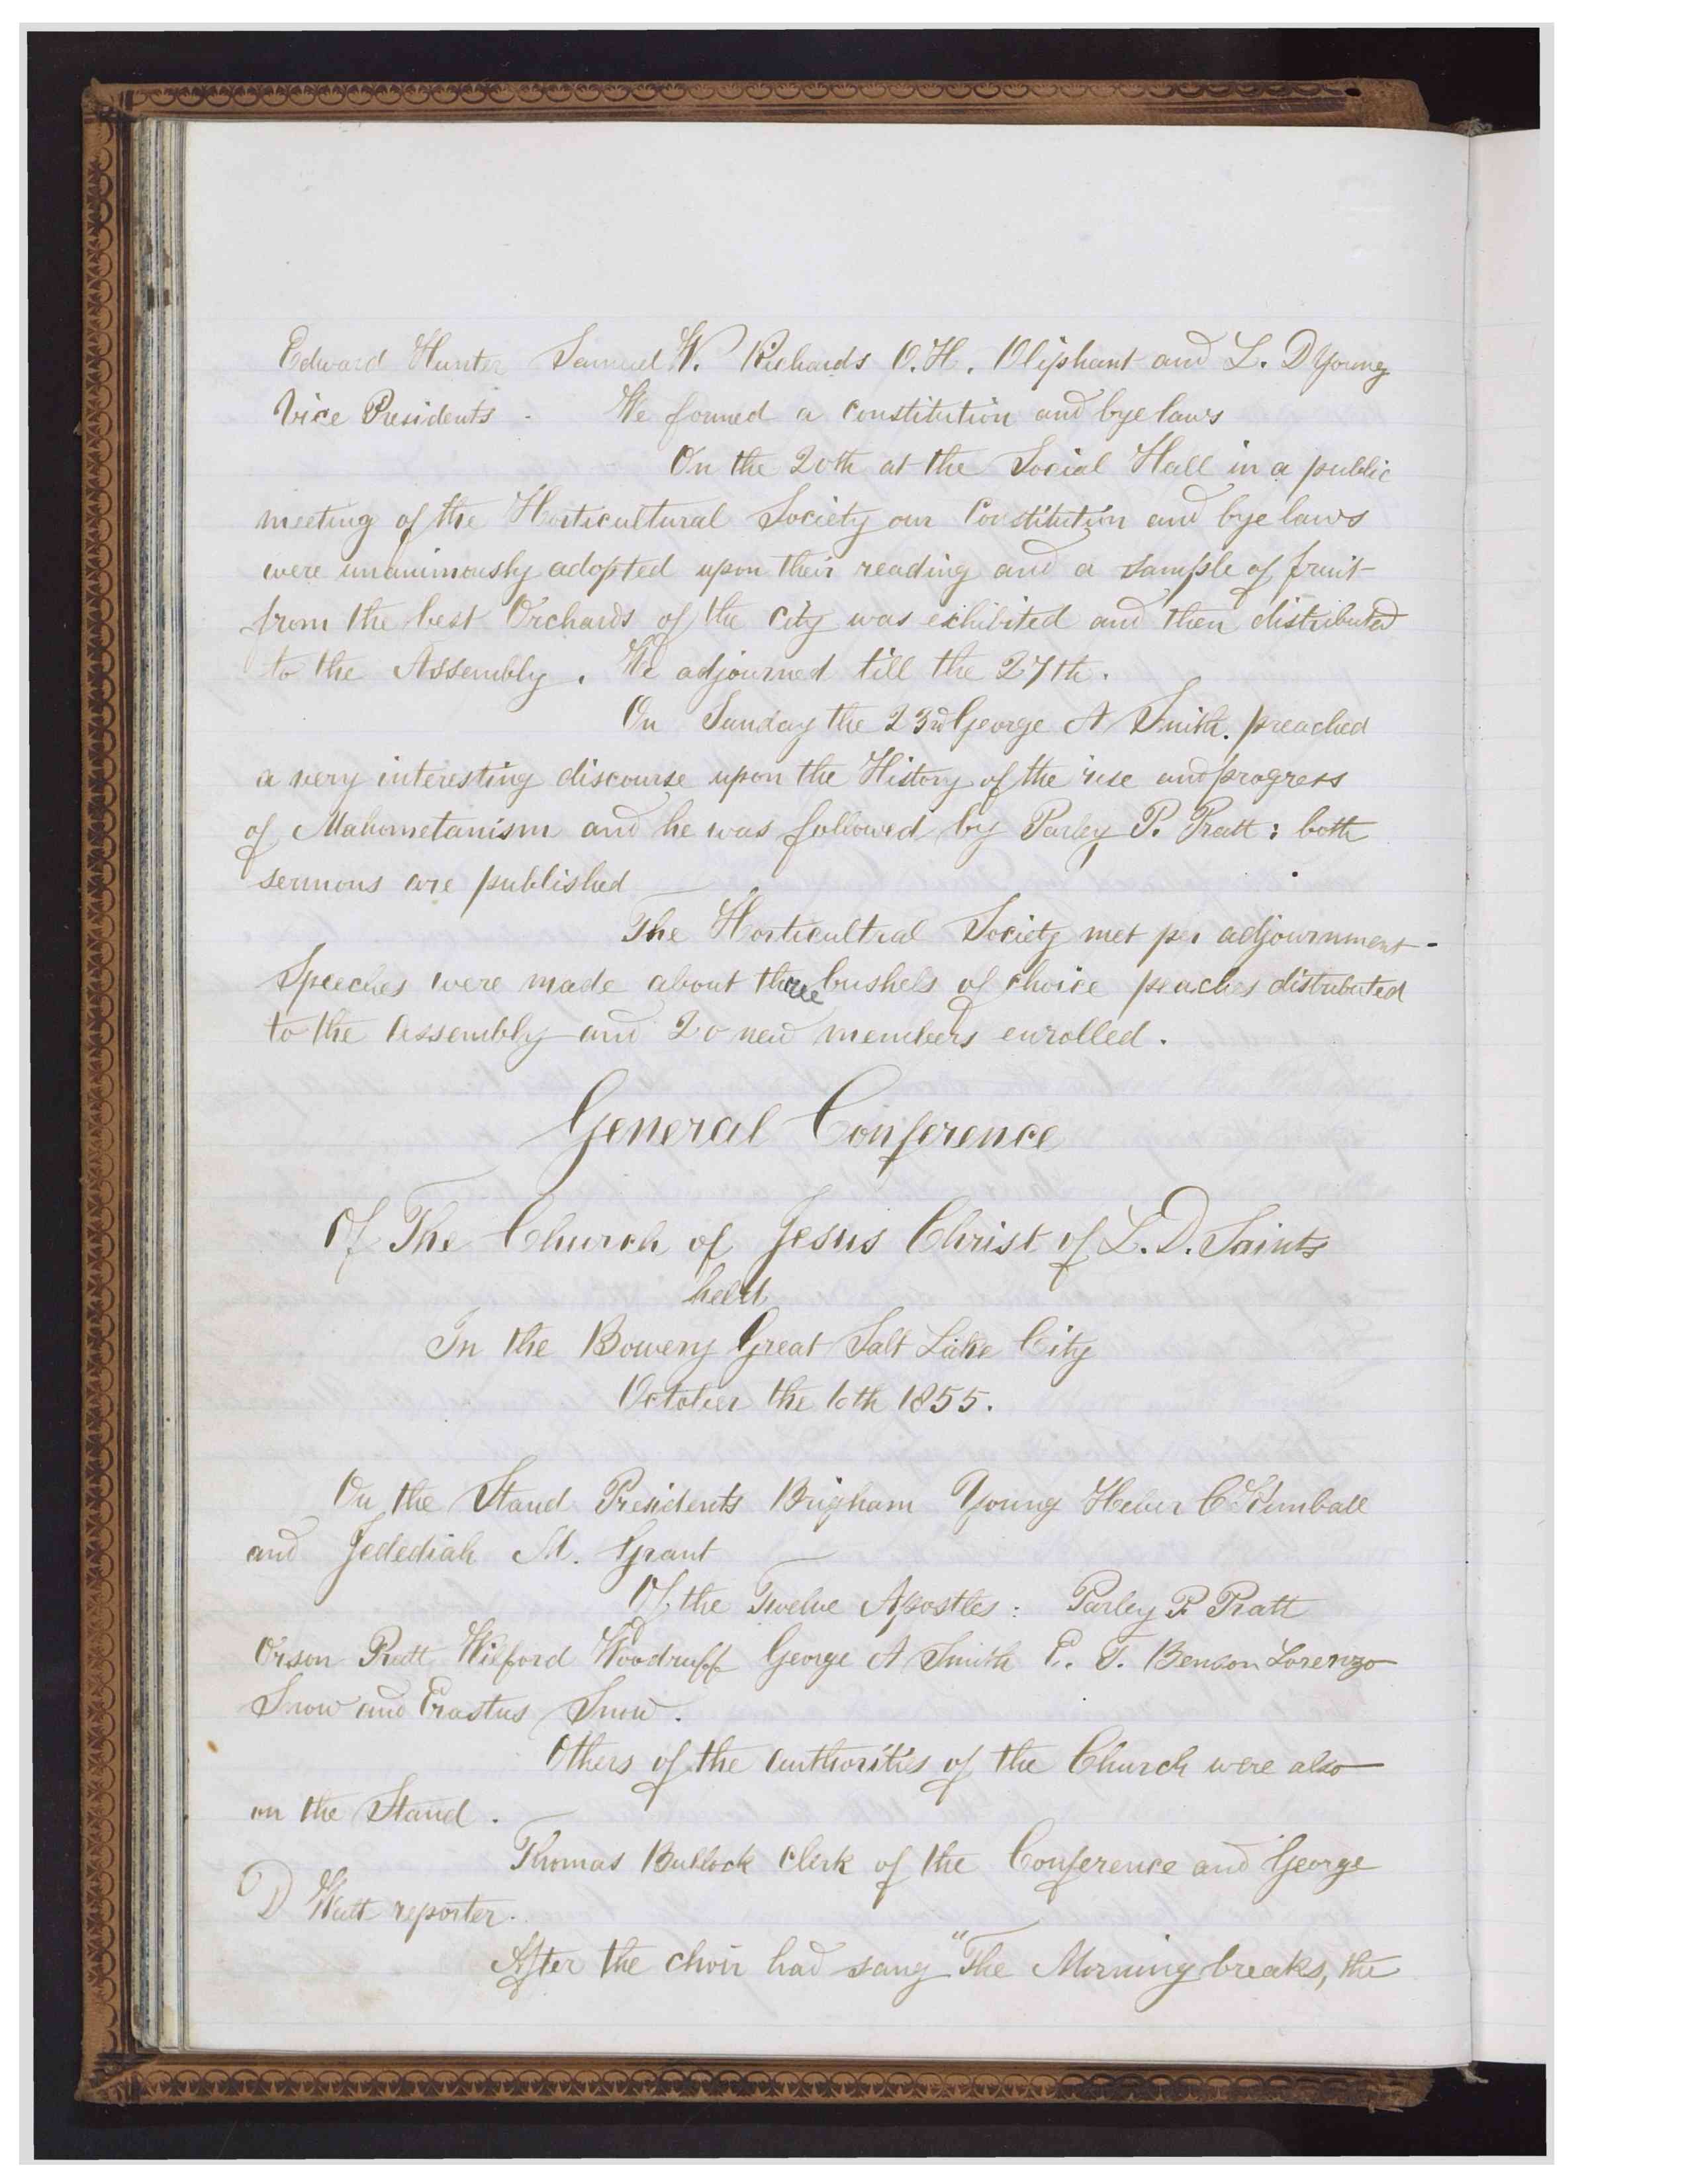 Edward Hunter Samuel W. Richards O. H. Oliphant and L. D Young
Vice Presidents - We formed a constitution and bye laws
On the 20th at the Social Hall in a public
meeting of the Horticultural Society our Constitution and bye laws
were unanimously adopted upon their reading and a sample of fruit
from the best Orchards of the City was exhibited and then distributed
to the Assembly. We adjourned till the 27th.
On Sunday the 23rd George A Smith. preached
a very interesting discourse upon the History of the rise and progress
of Mahometanism and he was followed by Parley P. Pratt: both
sermons are published
The Horticultral Society met per adjournment-
Speeches were made about three bushels of choice peaches distributed
to the Assembly and 20 new members enrolled.
General Conference
Of The Church of Jesus Christ of L. D. Saints
held
In the Bowery Great Salt Lake City
October the 6th 1855.
On the Stand Presidents Brigham Young Heber C Kimball
and Jedediah M. Grant
Of the Twelve Apostles: Parley P. Pratt
Orson Pratt Wilford Woodruff George A Smith E. T. Benson Lorenzo
Snow and Erastus Snow.
Others of the authorities of the Church were also
on the Stand.
Thomas Bullock Clerk of the Conference and George
D Watt reporter.
After the choir had sang "The Morning breaks, the